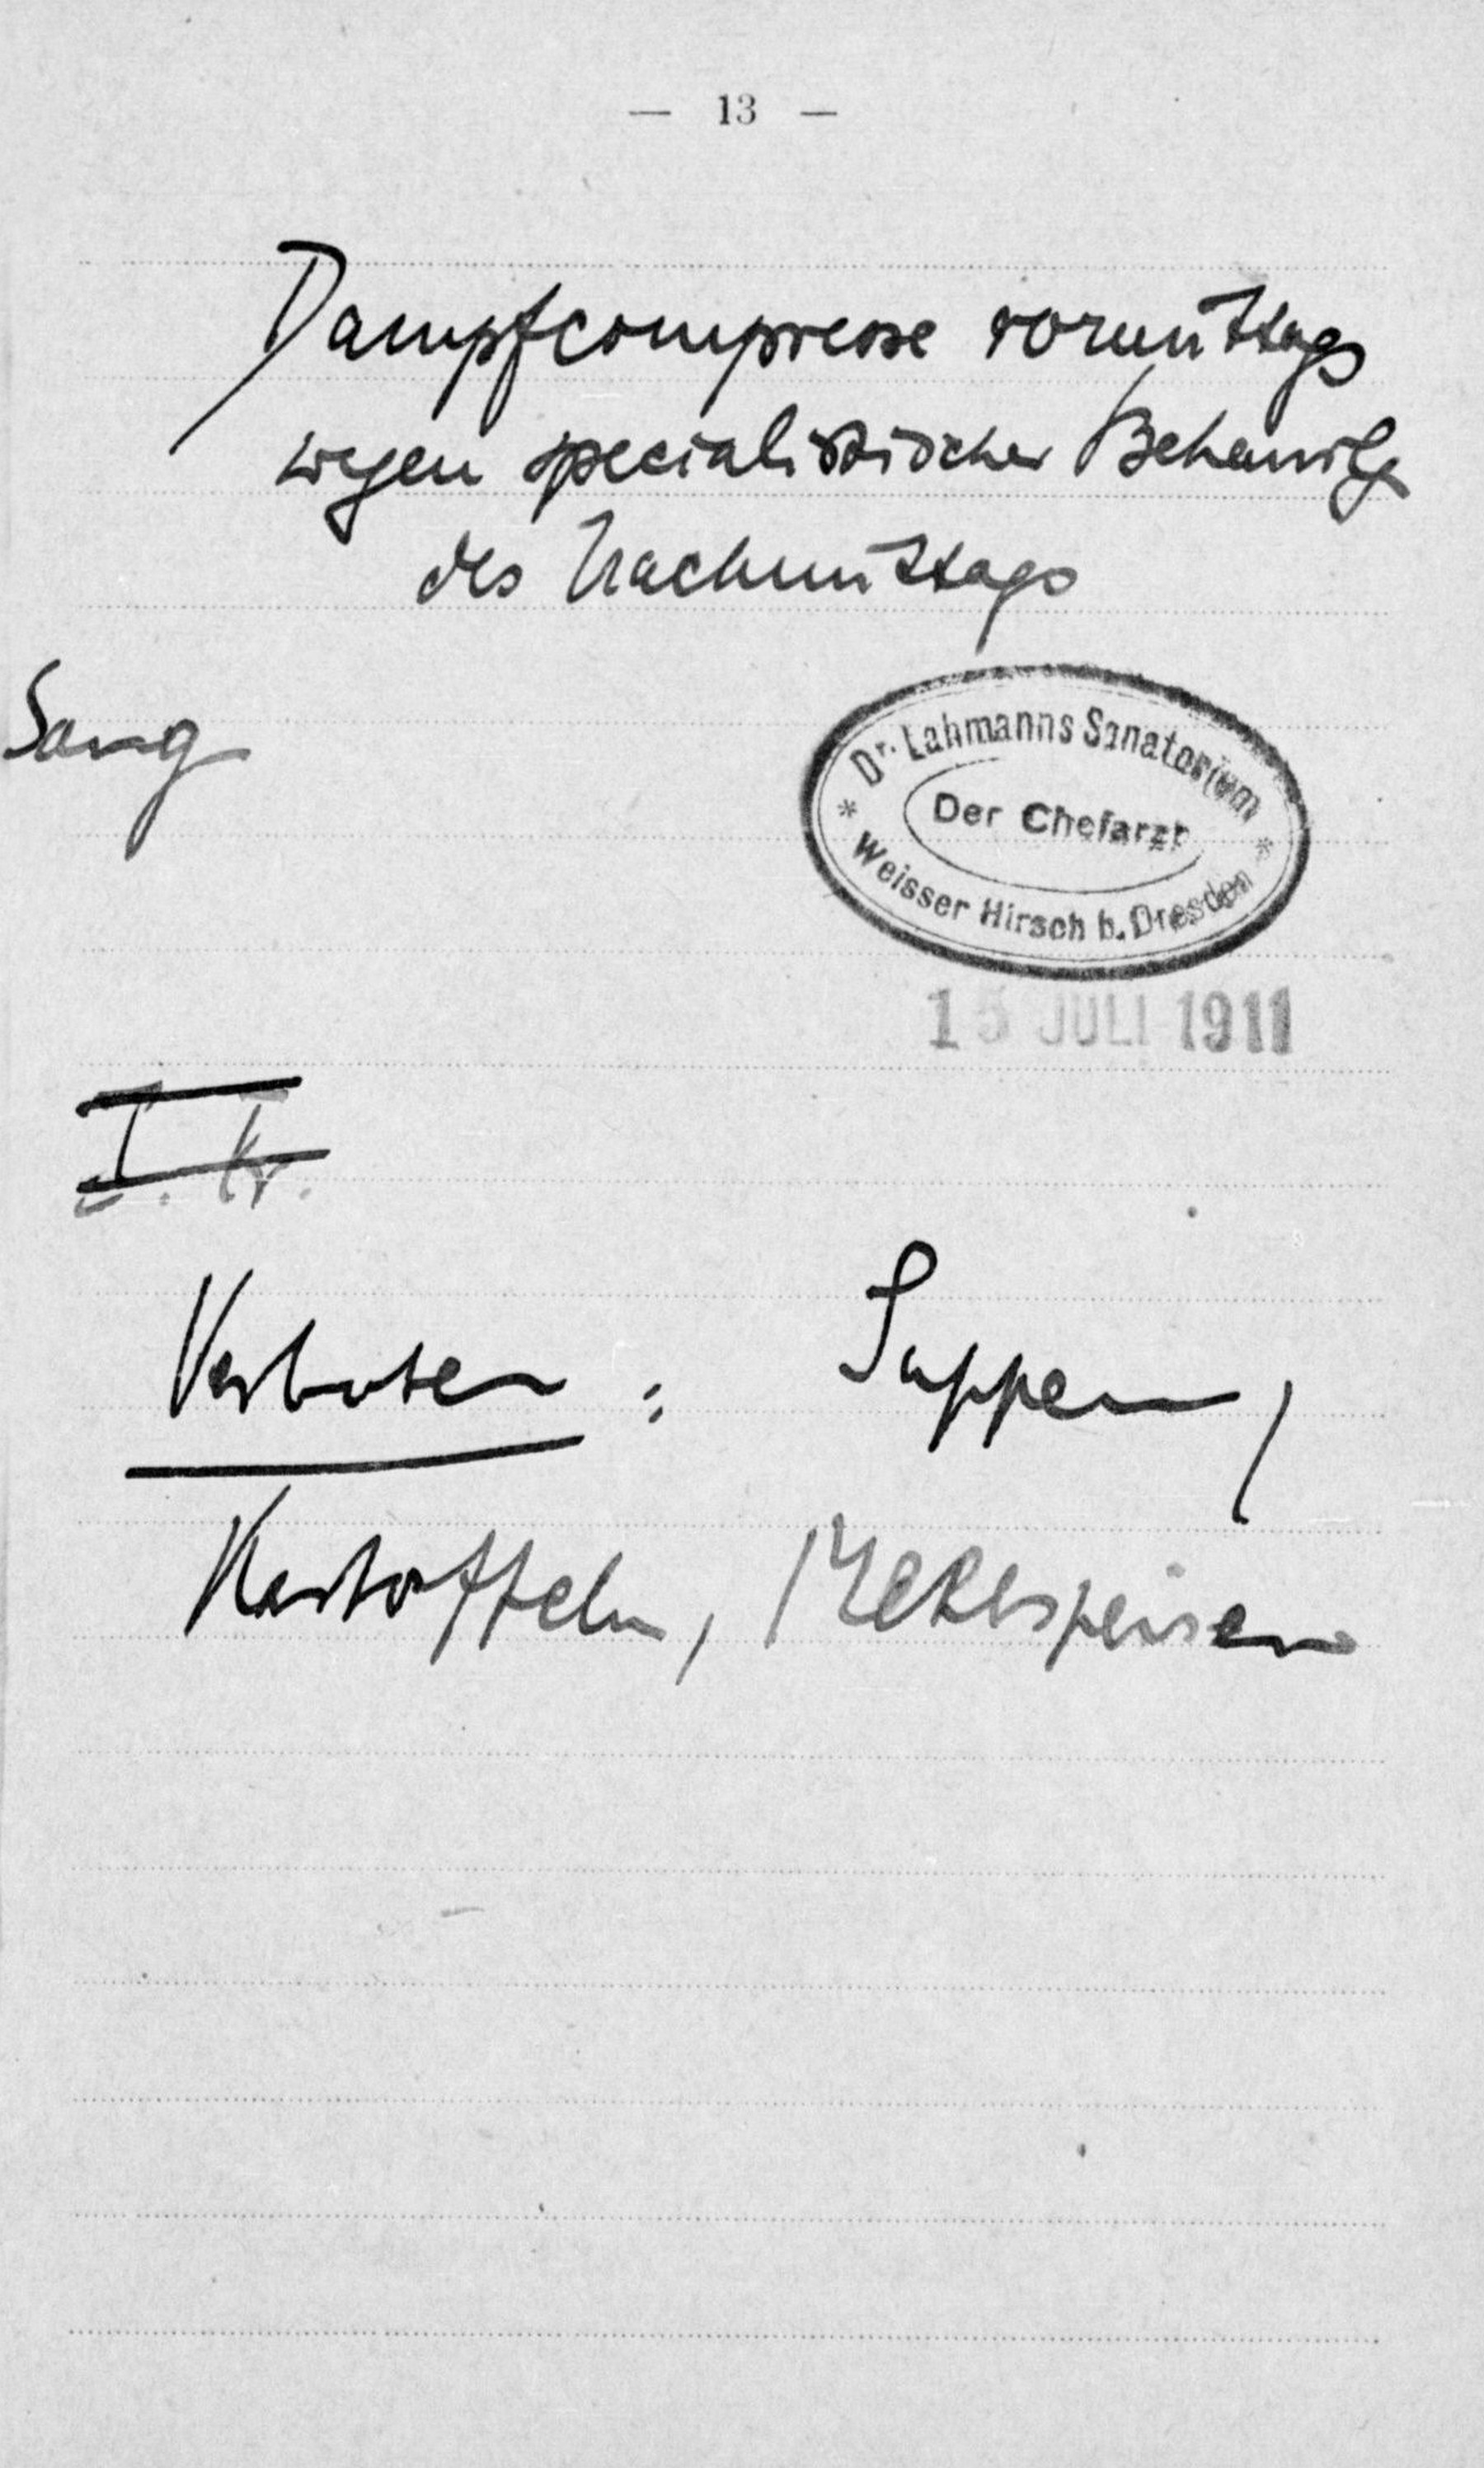 — 13 —
Dampfcompresse vormittags
wegen specialistischer Behandlg
des Nachmittags
Dr. Lahmanns Sanatorium
Der Chefarzt
* Weisser Hirsch b. Dresden *
15 JULI 1911
I. Kr.
Verboten : Suppen,
Kartoffeln, Mehlspeisen